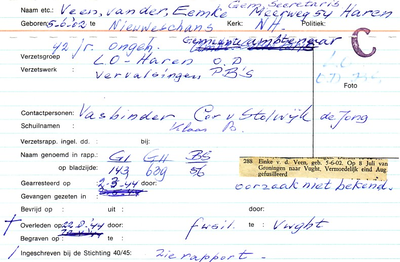 Gem. Secretaris
Naam etc.: Veen, van der, Eemke Meerweg 54 Haren
Geboren 5-6-02 Nieuweschans Kerk: N.H. Politiek:
42 jr. Ongeh.
C
Verzetsgroep LO-Haren O.D
Verzetswerk: Vervalsingen P.B's
Foto
Contactpersonen: Vasbinder, Cor v Stolwijk de Jong
Schuilnamen: Klaas
Verzetsrapp. ingel. dd. : bij:
Naam genoemd in rapp.: GI GH BS
op bladzijde: 143 639 56
288 Einke v. d. Veen, geb. 5-6-02. Op 8 Juli van
Groningen naar Vught. Vermoedelijk eind Aug.
gefusilleerd
Gearresteerd op door: oorzaak niet bekend.
Gevangen gezeten in :
Bevrijd op : uit : door:
† Overleden op : door: fusil. te: Vught
Begraven op : te:
Ingeschreven bij de Stichting 40/45: zie rapport.